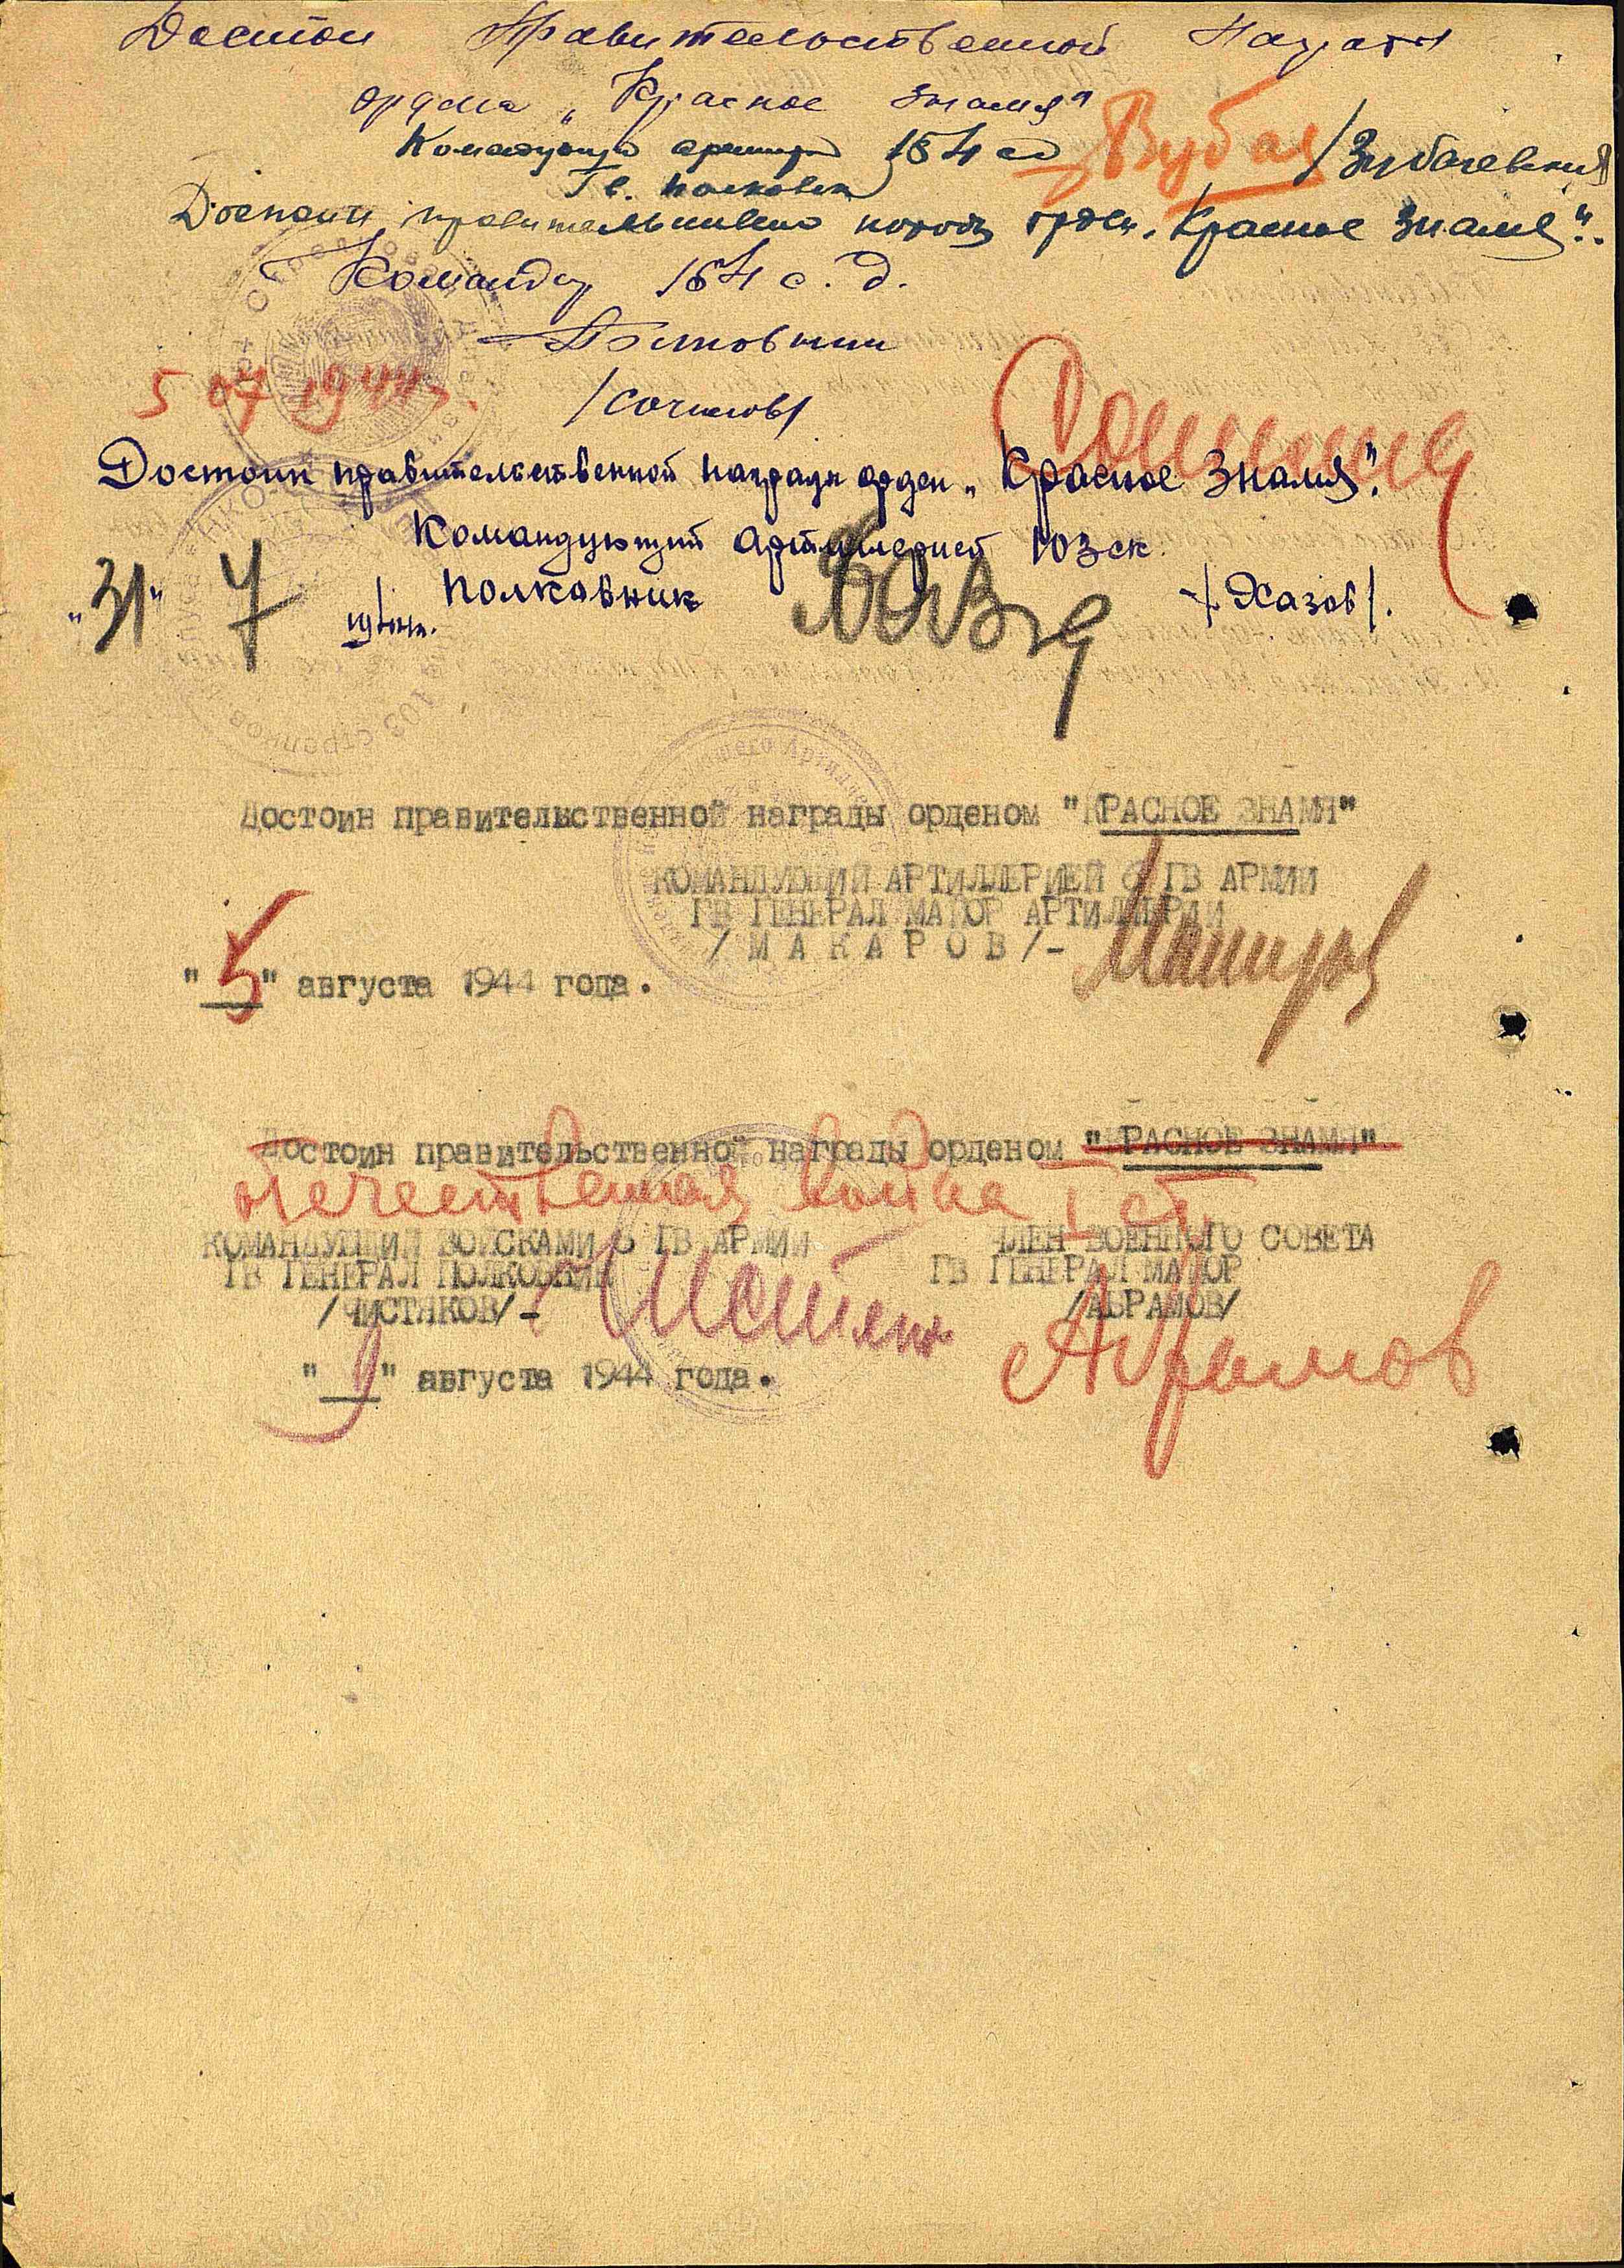 Достоин Правительственной Награды
ордена „Красное знамя"
Командующий 154 сд
Гв. полковник /Зубачевский
Достоин орден „Красное Знамя".
Командир 154 с. д.
Полковник
5 07 1944г.
/Сочилов/
Достоин правительственной награды орден „Красное Знамя".
Командующий артиллерией 103 ск
"31" 7
полковник /Хазов/.
Достоин правительственной награды орденом "КРАСНОЕ ЗНАМЯ"
КОМАНДУЮЩИЙ АРТИЛЛЕРИЕЙ 6 ГВ АРМИИ
ГВ ГЕНЕРАЛ МАЙОР АРТИЛЛЕРИИ
/МАКАРОВ/-
"5" августа 1944 года.
Достоин правительственной награды орденом "КРАСНОЕ ЗНАМЯ"
Отечественная война I ст
КОМАНДУЮЩИЙ ВОЙСКАМИ 6 ГВ АРМИИ ЧЛЕН ВОЕННОГО СОВЕТА
ГВ ГЕНЕРАЛ ПОЛКОВНИК ГВ ГЕНЕРАЛ МАЙОР
/ЧИСТЯКОВ/- /АБРАМОВ/
Абрамов
"9" августа 1944 года.